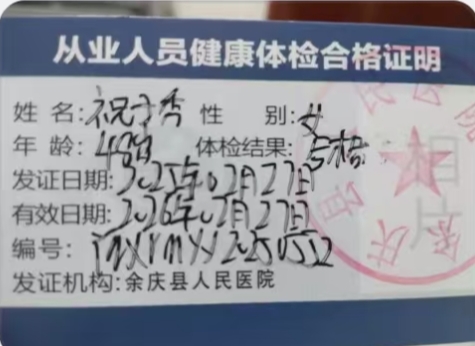 从业人员健康体检合格证明
姓 名: 祝子秀 性 别: 女
年 龄: 48岁 体检结果: 合格
发证日期: 2025年02月27日
有效日期: 2026年02月27日
编号:
发证机构: 余庆县人民医院
相片